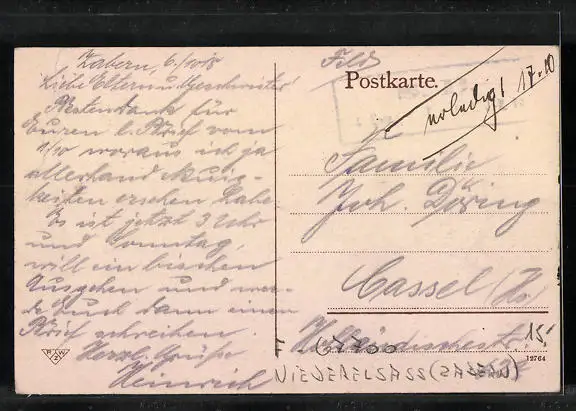 Zabern, 6/10 18
Liebe Eltern u. Geschwister!
Bestendank für
Euren l. Brief vom
1/10 woraus ich ja
allerhand Neuig-
keiten ersehen habe
Es ist jetzt 3 Uhr
und Sonntag,
will ein bischen
Ausgehen und wer-
de Euch dann einen
Brief schreiben.
Herzl. Grüße
Heinrich
Feld
Postkarte.
erledigt 17.10
Familie
Joh. Döring
Cassel
Holländischestr.
15,-
67700
NIEDERELSASS (ZABERN)
12764